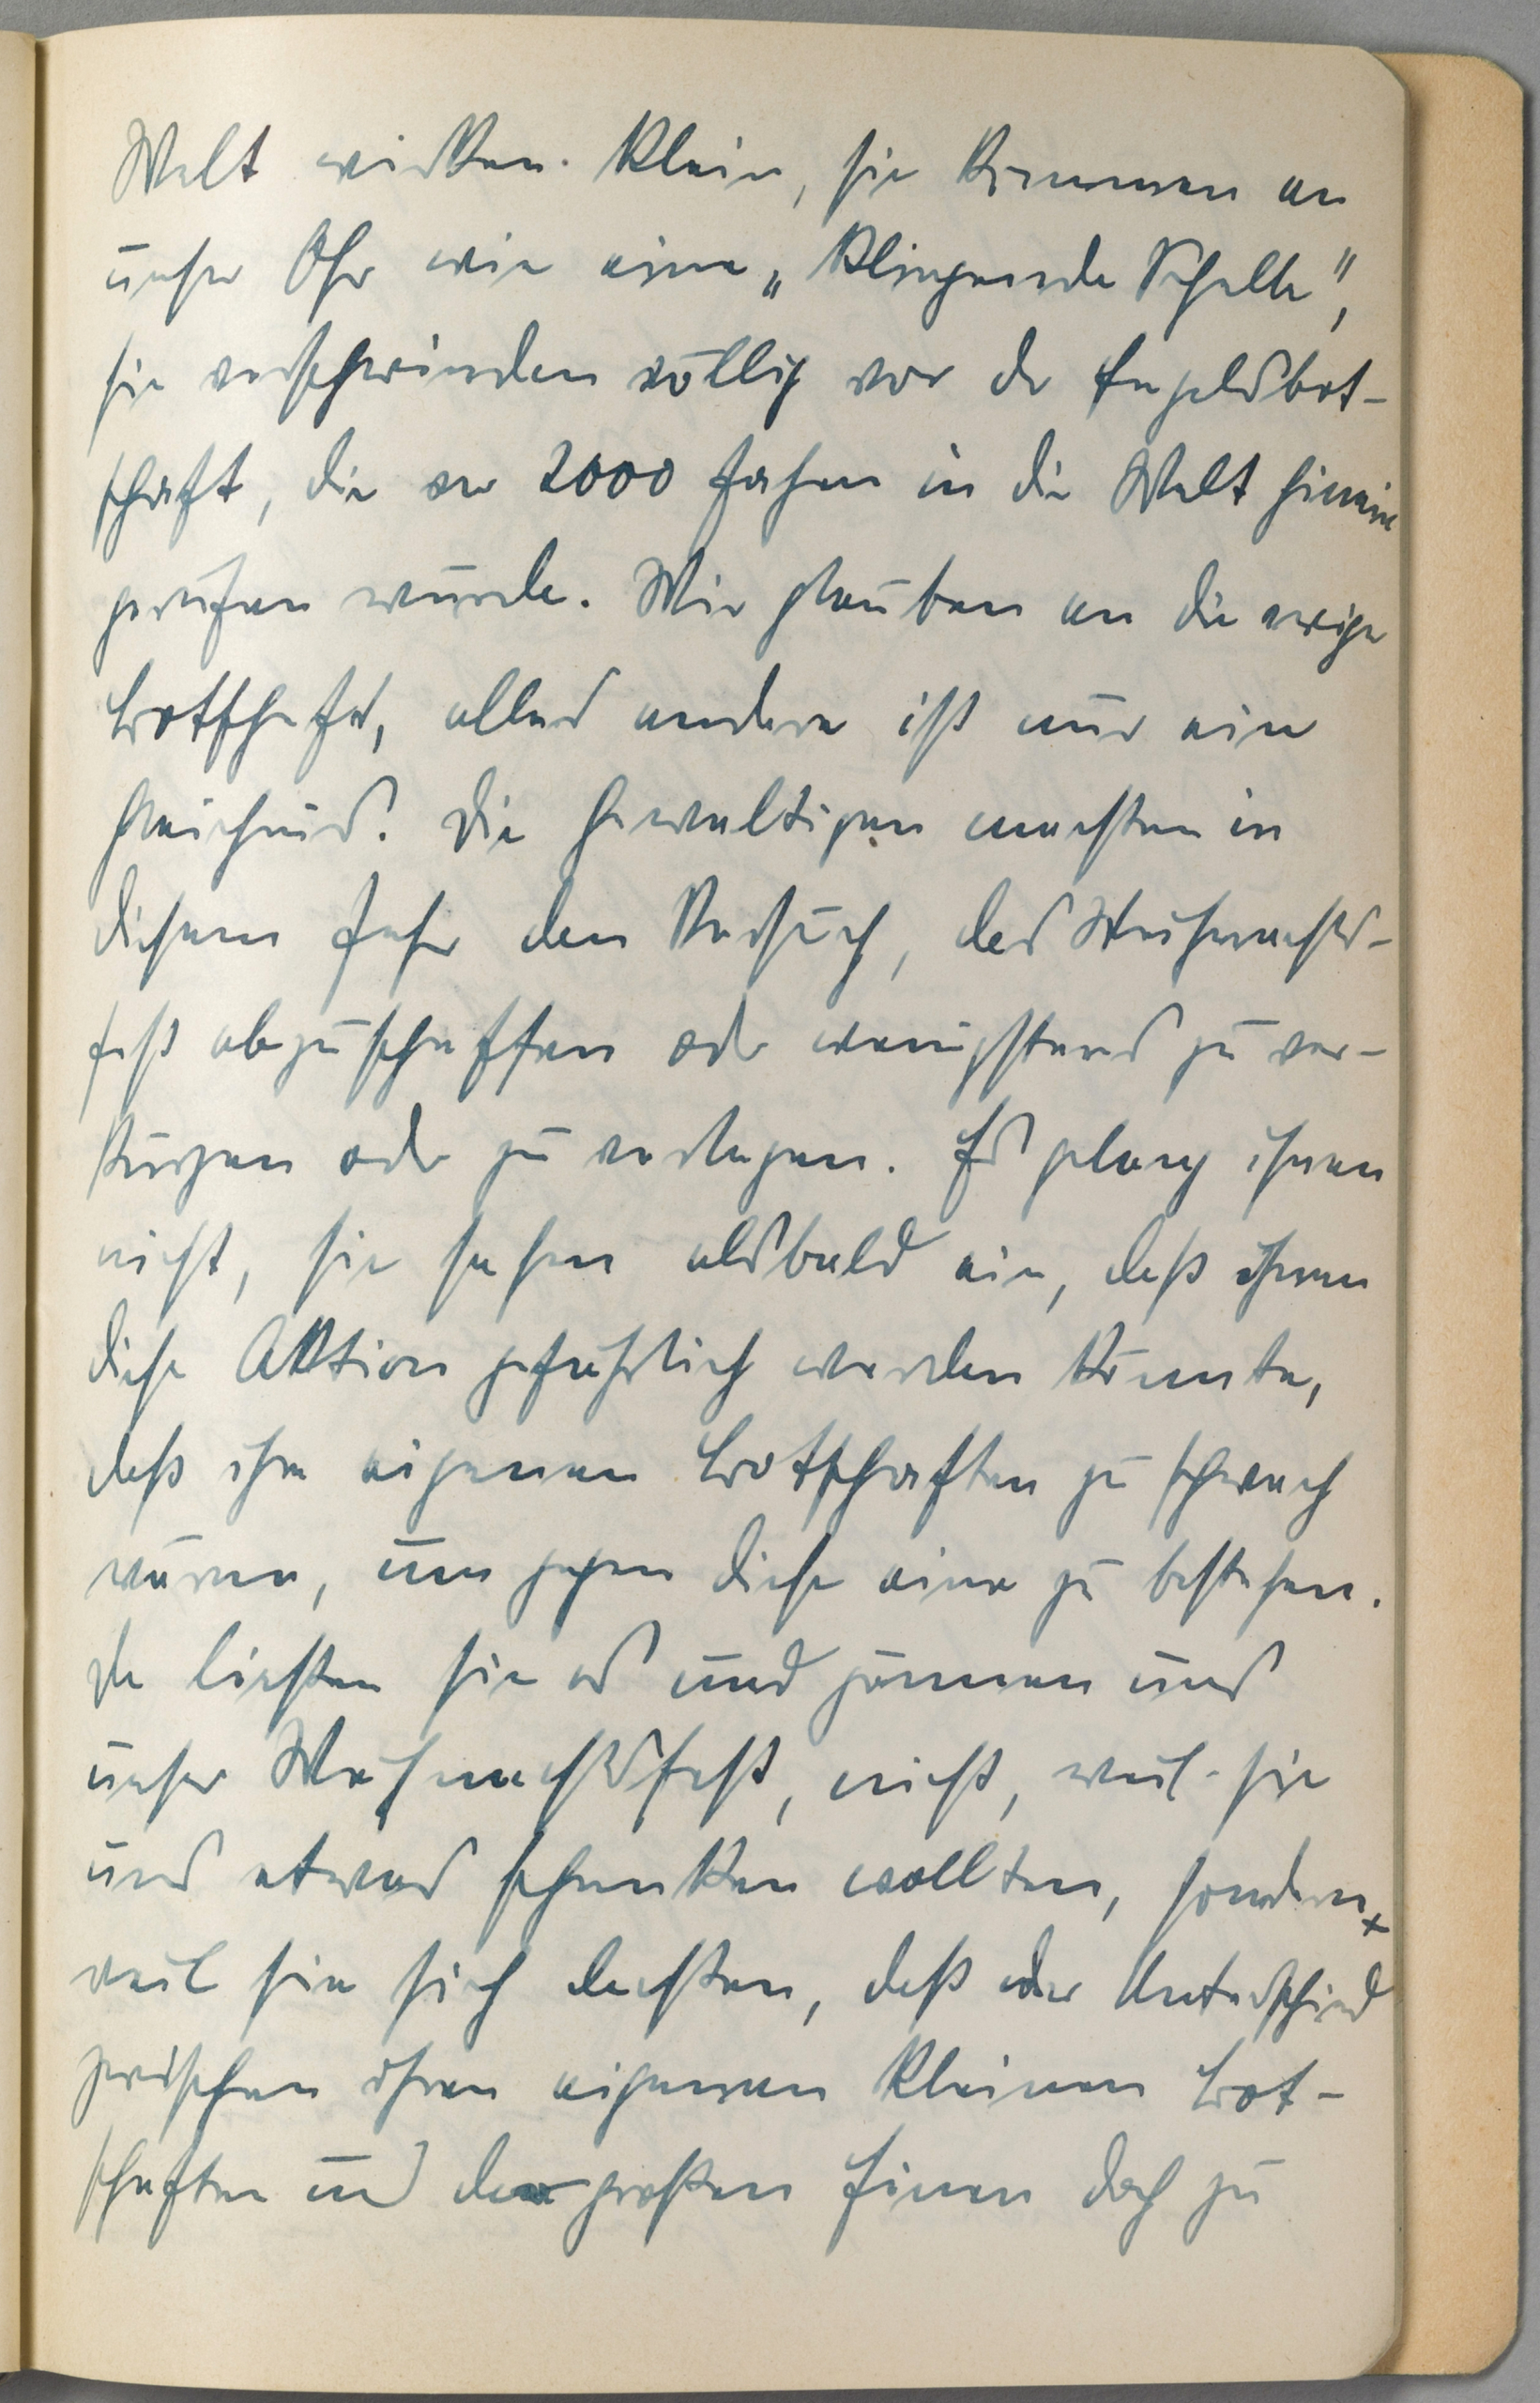 Welt wirken. Klein, sie kommen an
unser Ohr wie eine „klingende Schelle“,
sie verschwinden völlig vor der Engelsbot-
schaft, die vor 2000 Jahren in die Welt hinein
gerufen wurde. Wir glauben an die ewige
Botschaft, alles andere ist nur ein
Gleichnis. Die Gewaltigen machten in
diesem Jahr den Versuch, das Weihnachts-
fest abzuschaffen oder wenigstens zu ver-
kürzen oder zu verlegen. Es gelang ihnen
nicht, sie sahen alsbald ein, daß ihnen
diese Aktion gefährlich werden könnte,
daß ihre eigenen Botschaften zu schwach
wären, um gegen diese eine zu bestehen.
Da ließen sie es uns gönnen und
unser Weihnachtsfest, nicht, weil sie
uns etwas schenken wollten, sondern
weil sie sich dachten, daß der Unterschied
zwischen ihren eigenen kleinen Bot-
schaften und der großen Einen doch zu